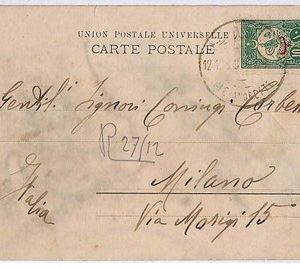 UNION POSTALE UNIVERSELLE
CARTE POSTALE
Gentil. Signori
R 27/12
Milano
Italia
Via Morigi 15